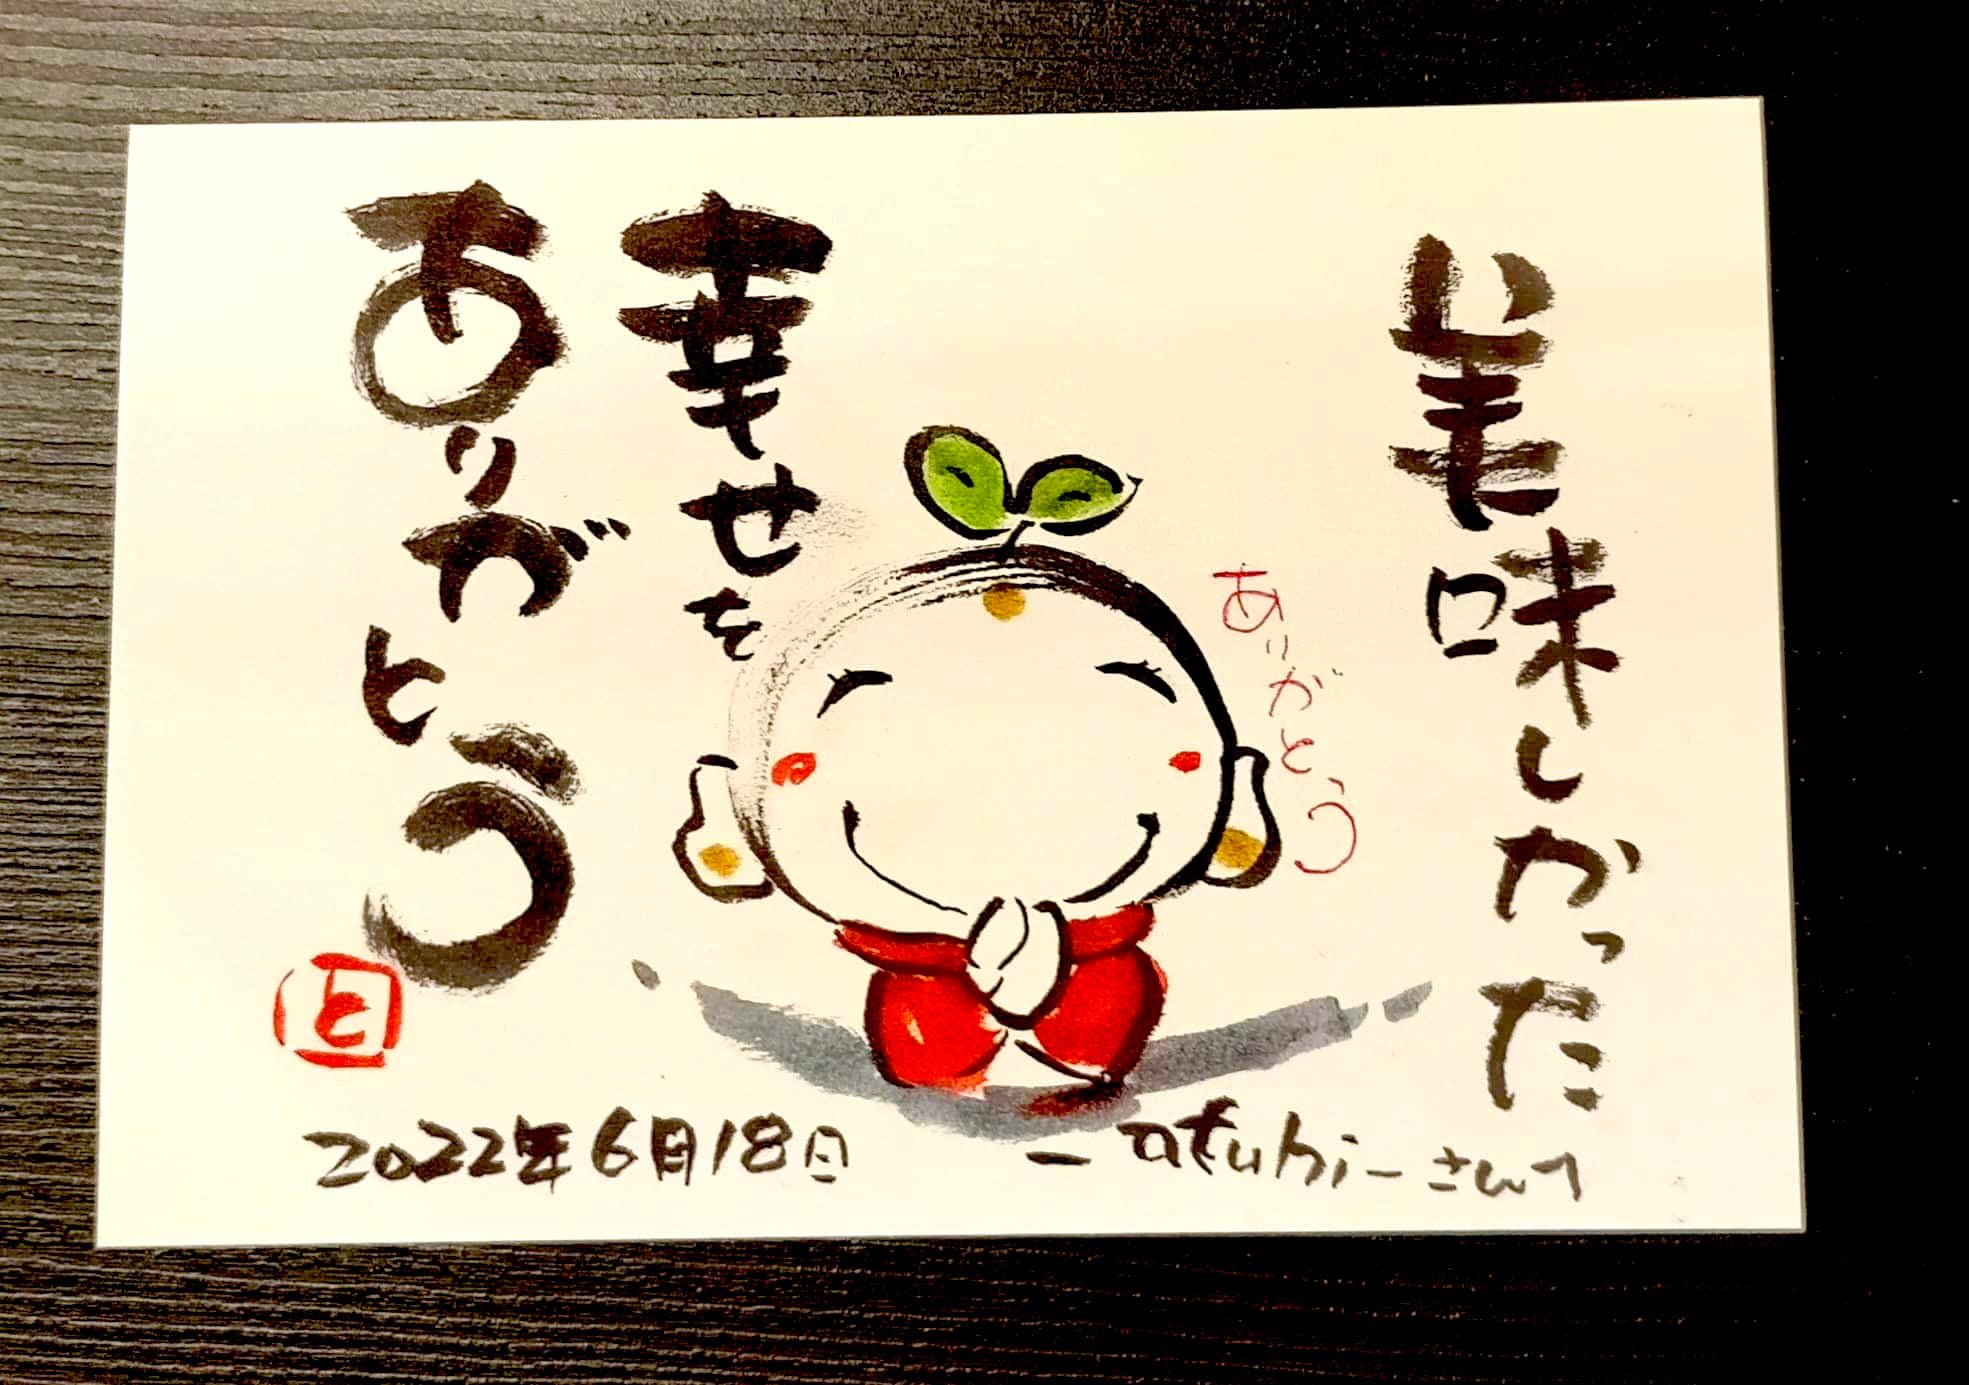 美味しかった
ありがとう
幸せを
ありがとう
と
2022年6月18日